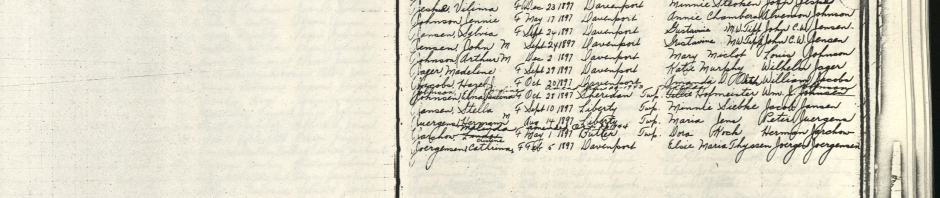 Jespe, Velima F Dec 23 1897 Davenport Minnie Stecken John Jespe
Johnson, Jennie F May 17 1897 Davenport Annie Chambers Alverson Johnson
Jansen, Sylvia F Sept 24 1897 Davenport Gustavine M.W. Tipp John C.W. Jensen
Jensen, John M Sept 24 1897 Davenport Gustavine M.W. Tipp John C.W. Jensen
Johnson, Arthur M Dec 2 1897 Davenport Mary Miclot Louis Johnson
Jager, Madelene F Sept 29 1897 Davenport Katie Murphy Wilhelm Jager
Jacobs, Hazel F Oct 20 1897 Davenport Amanda William Jacobs
Johnsen, Elma F Oct 28 1897 Sheridan Twp. Hofmeister Wm. J. Johnson
Jansen, Stella F Sept 10 1897 Liberty Twp. Minnie Siebke Jacob Jansen
Juergens, Hermann M Aug 14 1897 Liberty Twp. Maria Jens Peter Juergens
Jarchow, F May 1 1897 Butler Twp. Dora Koch Herman Jarchow
Joergensen, Cathrina F Feb 5 1897 Davenport Elsie Maria Thyssen Joergen Joergensen